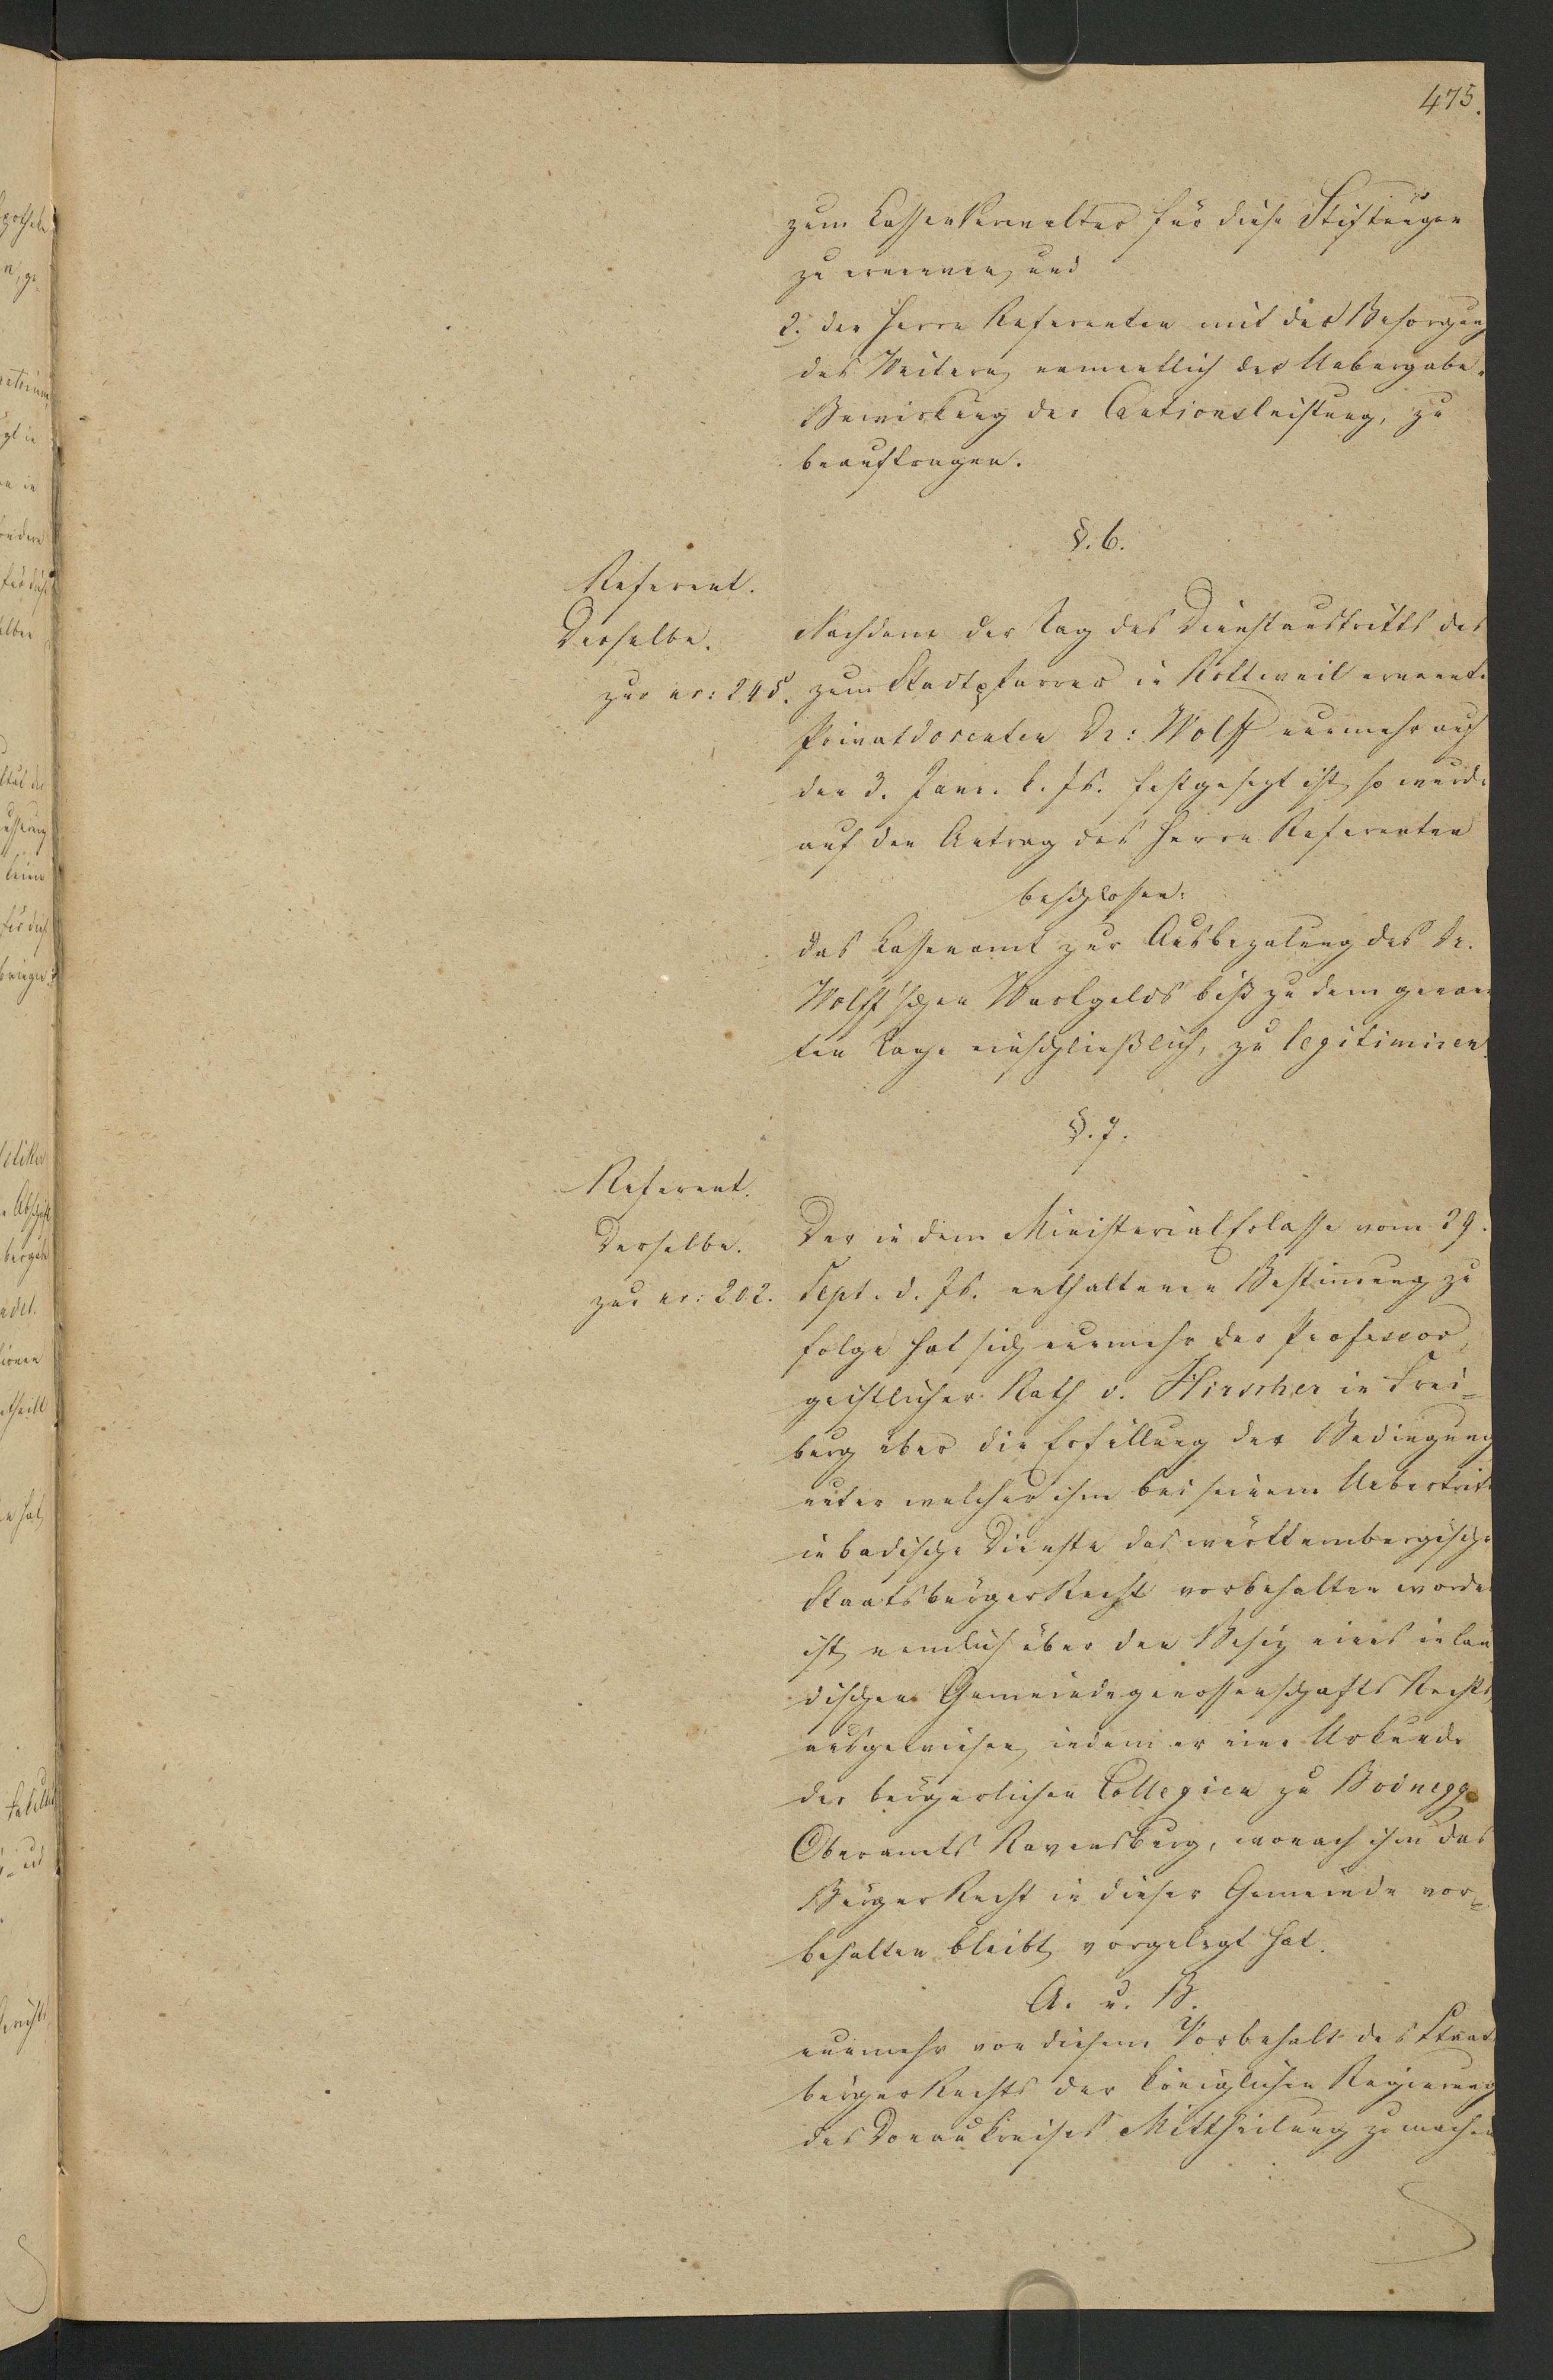 475.
zum Cassenverwalter für diese Stiftungen
zu ernennen, und
2. den Herrn Referenten mit der Besorgung
des Weitern, namentlich der Uebergabe,
Bewirkung der Cautionsleistung, zu
beauftragen.
§. 6.
Referent.
Derselbe.
zur nr: 245.
Nachdem der Tag des Dienstaustritts des
zum Stadtpfarrer in Rottweil ernannte
Privatdocenten Dr: Wolff nunmehr auf
den 3. Janr. k. Js. festgesezt ist, so wurde
auf den Antrag des Herrn Referenten
beschlossen:
das Cassenamt zur Ausbezalung des Dr.
Wolff'schen Wartgelds biß zu dem genan
ten Tage einschließlich, zu legitimiren.
§. 7.
Referent.
Derselbe.
zur nr: 202.
Der in dem MinisterialErlasse vom 29.
Sept. d. Js. enthaltenen Bestimmung zu
folge hat sich nunmehr der Professor,
geistlicher Rath v. Hirscher in Frei-
burg über die Erfüllung der Bedingung
unter welcher ihm bei seinem Uebertritt
in badische Dienste das württembergische
StaatsbürgerRecht vorbehalten worden
ist, nemlich über den Besiz eines inlän
dischen GemeindegenossenschaftsRechts,
ausgewiesen, indem er eine Urkunde
der bürgerlichen Collegien zu Bodnegg
Oberamts Ravensburg, wonach ihm das
BürgerRecht in dieser Gemeinde vor-
behalten bleibt, vorgelegt hat.
A. u. B.
nunmehr von diesem Vorbehalt des Staats
bürgerRechts der königlichen Regierung
des Donaukreises Mittheilung zu machen